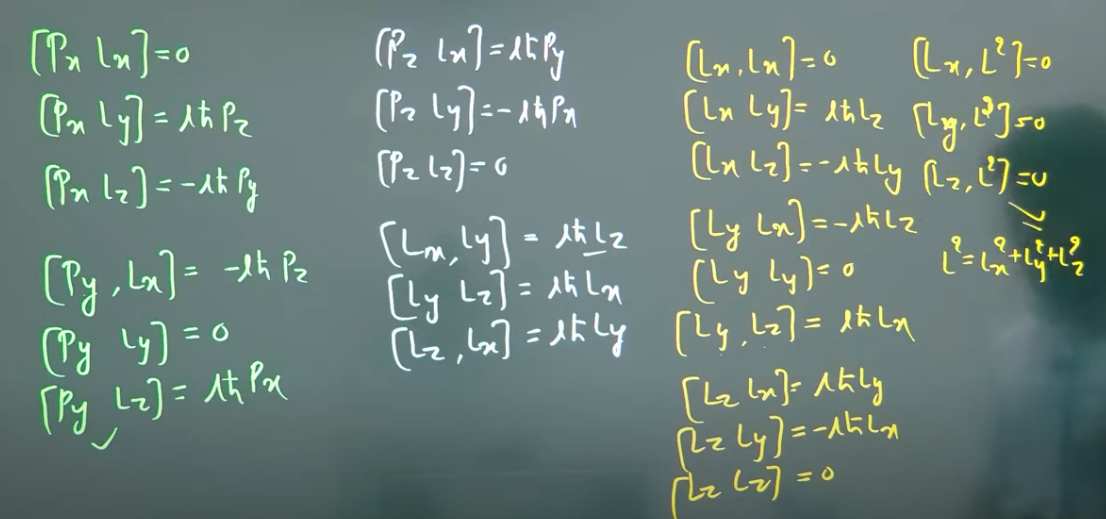 [Px Lx]=0
[Px Ly]=iħPz
[Px Lz]=-iħPy
[Py,Lx]=-iħPz
[Py Ly]=0
[Py Lz]=iħPx
[Pz Lx]=iħPy
[Pz Ly]=-iħPx
[Pz Lz]=0
[Lx,Ly]=iħLz
[Ly Lz]=iħLx
[Lz,Lx]=iħLy
[Lx,Lx]=0
[Lx Ly]=iħLz
[Lx Lz]=-iħLy
[Ly Lx]=-iħLz
[Ly Ly]=0
[Ly,Lz]=iħLx
[Lz Lx]=iħLy
[Lz Ly]=-iħLx
[Lz Lz]=0
[Lx,L²]=0
[Ly,L²]=0
[Lz,L²]=0
L²=Lx²+Ly²+Lz²